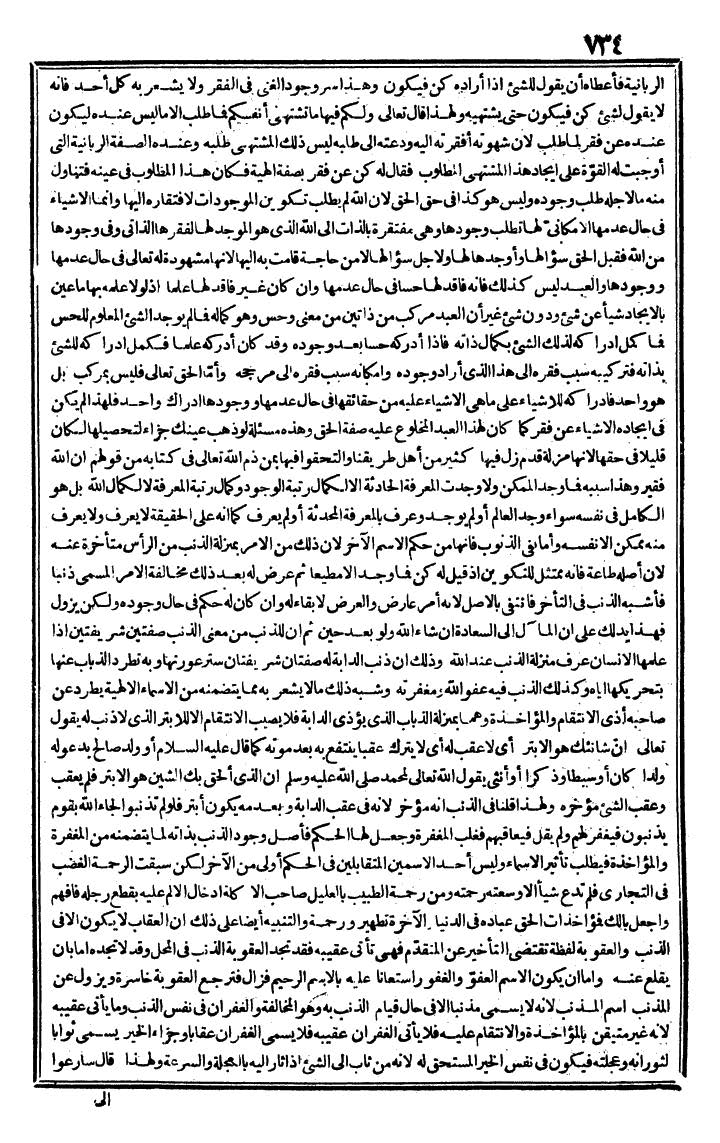 ٧٣٤
الربانية فأعطاه أن يقول للشئ اذا أراده كن فيكون وهذا سر وجود الغنى فى الفقر ولا يشعر به كل أحد فانه
لا يقول لشئ كن فيكون حتى يشتهيه ولهذا قال تعالى ولكم فيها ما تشتهى أنفسكم فما طلب الا ما ليس عنده ليكون
عنده عن فقر لما طلب لان شهوته أفقرته اليه ودعته الى طلبه ليس ذلك المشتهى طلبه وعنده الصفة الربانية التى
أوجبت له القوّة على ايجاد هذا المشتهى المطلوب فقال له كن عن فقر بصفة الهية فكان هذا المطلوب فى عينه فتناول
منه ما لاجله طلب وجوده وليس هو كذا فى حق الحق لان الله لم يطلب تكوين الموجودات لافتقاره اليها وانما الاشياء
فى حال عدمها الامكانىّ لها تطلب وجودها وهى مفتقرة بالذات الى الله الذى هو الموجد لها لفقرها الذاتى وفى وجودها
من الله فقبل الحق سؤالها وأوجدها لها ولاجل سؤالها لا من حاجة قامت به اليها لانها مشهودة له تعالى فى حال عدمها
ووجودها والعبد ليس كذلك فانه فاقد لها حسا فى حال عدمها وان كان غير فاقد لها علما اذ لولا علمه بها ما عين
بالايجاد شيأ عن شئ ودون شئ غير أن العبد مركب من ذاتين من معنى وحس وهو كماله فما لم يوجد الشئ المعلوم للحس
فما كمل ادراكه لذلك الشئ بكمال ذاته فاذا أدركه حسا بعد وجوده وقد كان أدركه علما فكمل ادراكه للشئ
بذاته فتركيبه سبب فقره الى هذا الذى أراد وجوده وامكانه سبب فقره الى مرجحه وأمّا الحق تعالى فليس بمركب بل
هو واحد فادراكه للاشياء على ما هى الاشياء عليه من حقائقها فى حال عدمها ووجودها ادراك واحد فلهذا لم يكن
فى ايجاده الاشياء عن فقر كما كان لهذا العبد المخلوع عليه صفة الحق وهذه مسئلة لو ذهب عينك جزاء لتحصيلها لكان
قليلا فى حقها لانها مزلة قدم زل فيها كثير من أهل طريقنا والتحقوا فيها بمن ذم الله تعالى فى كتابه من قولهم ان الله
فقير وهذا سببه فما وجد الممكن ولا وجدت المعرفة الحادثة الا لكمال رتبة الوجود وكمال رتبة المعرفة لا لكمال الله بل هو
الكامل فى نفسه سواء وجد العالم أو لم يوجد وعرف بالمعرفة المحدثة أو لم يعرف كما انه على الحقيقة لا يعرف ولا يعرف
منه ممكن الا نفسه وأما نفى الذنوب فانها من حكم الاسم الآخر لان ذلك من الامر بمنزلة الذنب من الرأس متأخرة عنه
لان أصله طاعة فانه ممتثل للتكوين اذ قيل له كن فما وجد الا مطيعا ثم عرض له بعد ذلك مخالفة الامر المسمى ذنبا
فأشبه الذنب فى التأخر فانتفى بالاصل لانه أمر عارض والعرض لا بقاء له وان كان له حكم فى حال وجوده ولكن يزول
فهذا يدلك على ان المآل الى السعادة ان شاء الله ولو بعد حين ثم ان للذنب من معنى الذنب صفتين شريفتين اذا
علمها الانسان عرف منزلة الذنب عند الله وذلك ان ذنب الدابة له صفتان شريفتان ستر عورتها وبه تطرد الذباب عنها
بتحريكها اياه وكذلك الذنب فيه عفو الله ومغفرته وشبه ذلك مالا يشعر به مما يتضمنه من الاسماء الالهية يطرد عن
صاحبه أذى الانتقام والمؤاخذة وهما بمنزلة الذباب الذى يؤذى الدابة فلا يصيب الانتقام الا للابتر الذى لا ذنب له يقول
تعالى انّ شانئك هو الابتر أى لا عقب له أى لا يترك عقبا ينتفع به بعد موته كما قال عليه السلام أو ولد صالح يدعو له
ولدا كان أو سبطا وذكرا أو أنثى يقول الله تعالى لمحمد صلى الله عليه وسلم ان الذى ألحق بك الشين هو الابتر فلم يعقب
وعقب الشئ مؤخره ولهذا قلنا فى الذنب انه مؤخر لانه فى عقب الدابة وبعدمه يكون أبتر فلو لم تذنبوا لجاء الله بقوم
يذنبون فيغفر لهم ولم يقل فيعاقبهم فغلب المغفرة وجعل لها الحكم فأصل وجود الذنب بذاته لما يتضمنه من المغفرة
والمؤاخذة فيطلب تأثير الاسماء وليس أحد الاسمين المتقابلين فى الحكم أولى من الآخر لكن سبقت الرحمة الغضب
فى التجارى فلم تدع شيأ الا وسعته رحمته ومن رحمة الطبيب بالعليل صاحب الاكلة ادخال الالم عليه بقطع رجله فافهم
واجعل بالك فمؤاخذات الحق عباده فى الدنيا والآخرة تطهير ورحمة والتنبيه أيضا على ذلك ان العقاب لا يكون الا فى
الذنب والعقوبة لفظة تقتضى التأخير عن المتقدّم فهى تأتى عقيبه فقد تجد العقوبة الذنب فى المحل وقد لا تجده اما بان
يقلع عنه واما ان يكون الاسم العفوّ والغفور استعانا عليه بالاسم الرحيم فزال فترجع العقوبة خاسرة ويزول عن
المذنب اسم المذنب لانه لا يسمى مذنبا الا فى حال قيام الذنب به وهو المخالفة والغفران فى نفس الذنب وما يأتى عقيبه
لانه غير متيقن بالمؤاخذة والانتقام عليه فلا يأتى الغفران عقيبه فلا يسمى الغفران عقابا وجزاء الخير يسمى ثوابا
لثورانه وعجلته فيكون فى نفس الخير المستحق له لانه من ثاب الى الشئ اذا ثار اليه بالعجلة والسرعة ولهذا قال سارعوا
الى